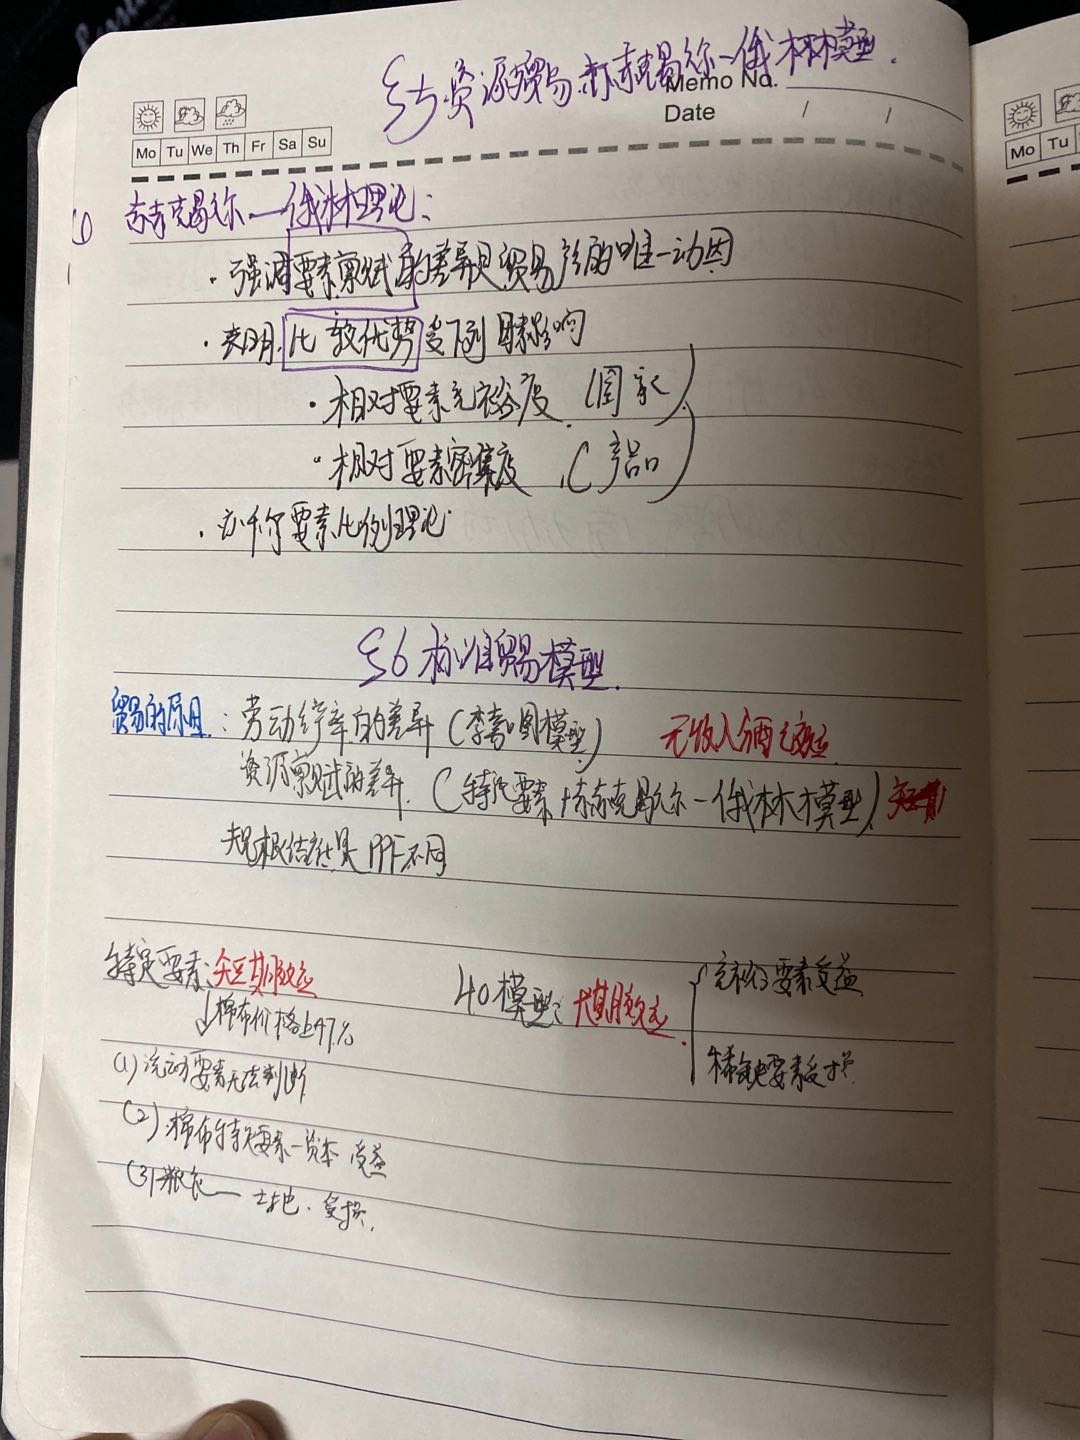 §5 资源与贸易:赫克歇尔—俄林模型.
Memo No.
Date / /
Mo Tu We Th Fr Sa Su
Mo Tu
(1) 赫克歇尔—俄林理论:
· 强调要素禀赋的差异是贸易产生的唯一动因
· 表明 比较优势受下列因素影响
· 相对要素充裕度 (国家)
· 相对要素密集度 (产品)
· 亦称要素比例理论
§6 标准贸易模型.
贸易的原因: 劳动生产率的差异 (李嘉图模型) 无收入分配效应
资源禀赋的差异. (特定要素+赫克歇尔—俄林模型)
PPF不同
特定要素: 短期效应
↓棉布价格上升7%
HO模型: 长期效应.
充裕要素受益
稀缺要素受损
(1) 流动要素无法判断
(2) 棉布特定要素—资本 受益
(3) 粮食—土地. 受损.